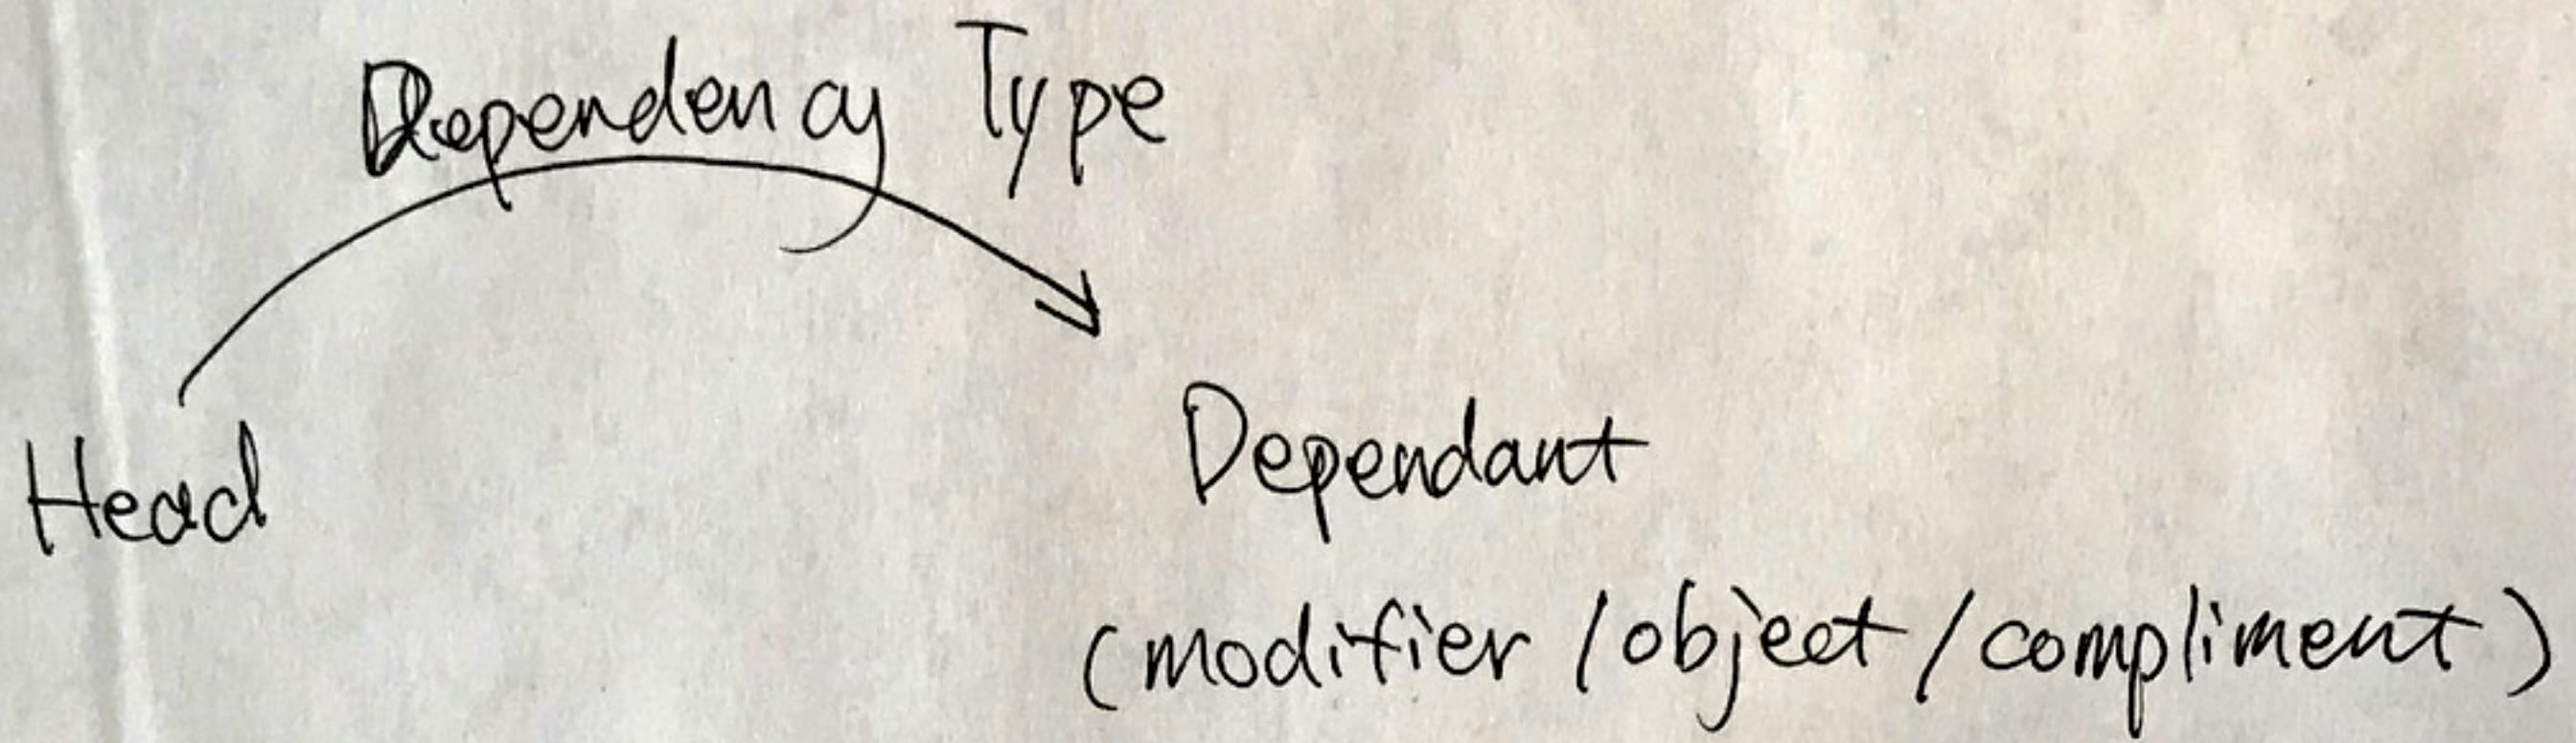 Dependency Type
Head
Dependant
(modifier / object / compliment)